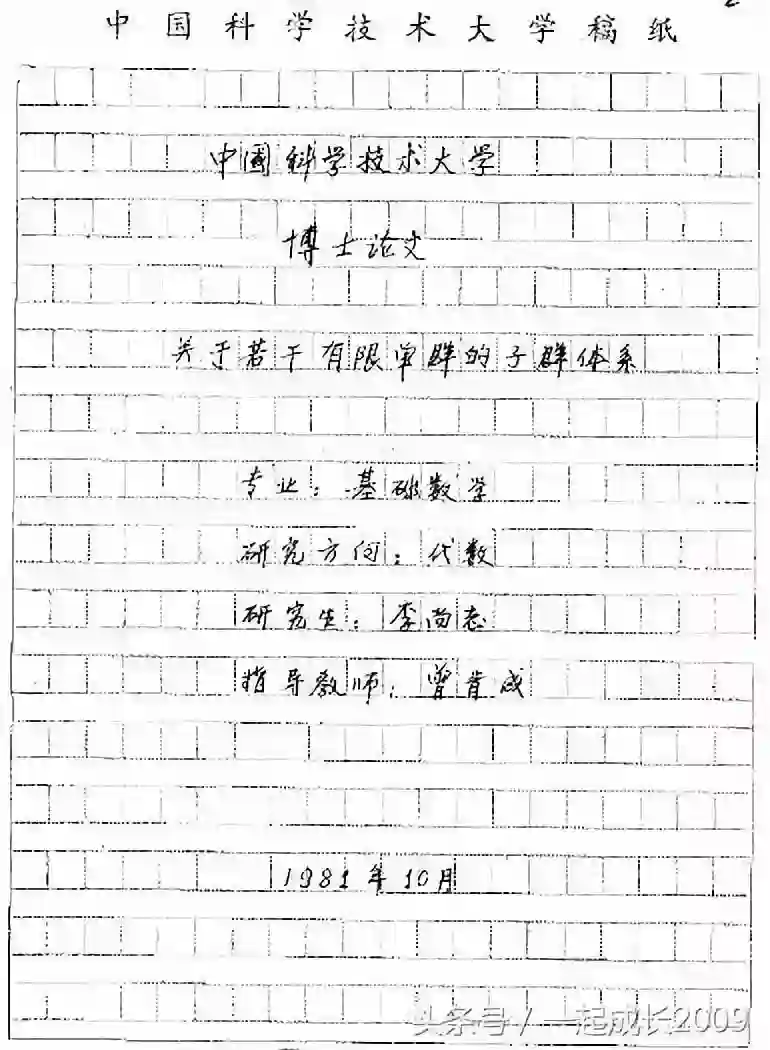 中国科学技术大学稿纸
中國科学技术大学
博士论文
关于若干有限单群的子群体系
专业：基础数学
研究方向：代数
研究生：李尚志
指导教师：曾肯成
1981年10月
头条号 / 一起成长2009